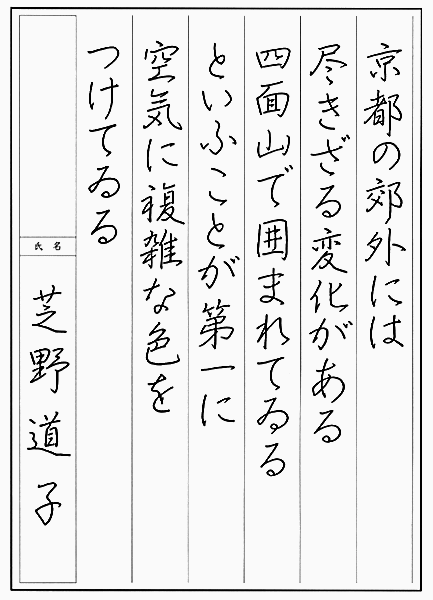 京都の郊外には
尽きざる変化がある
四面山で囲まれてゐる
といふことが第一に
空気に複雑な色を
つけてゐる
氏名
芝野道子